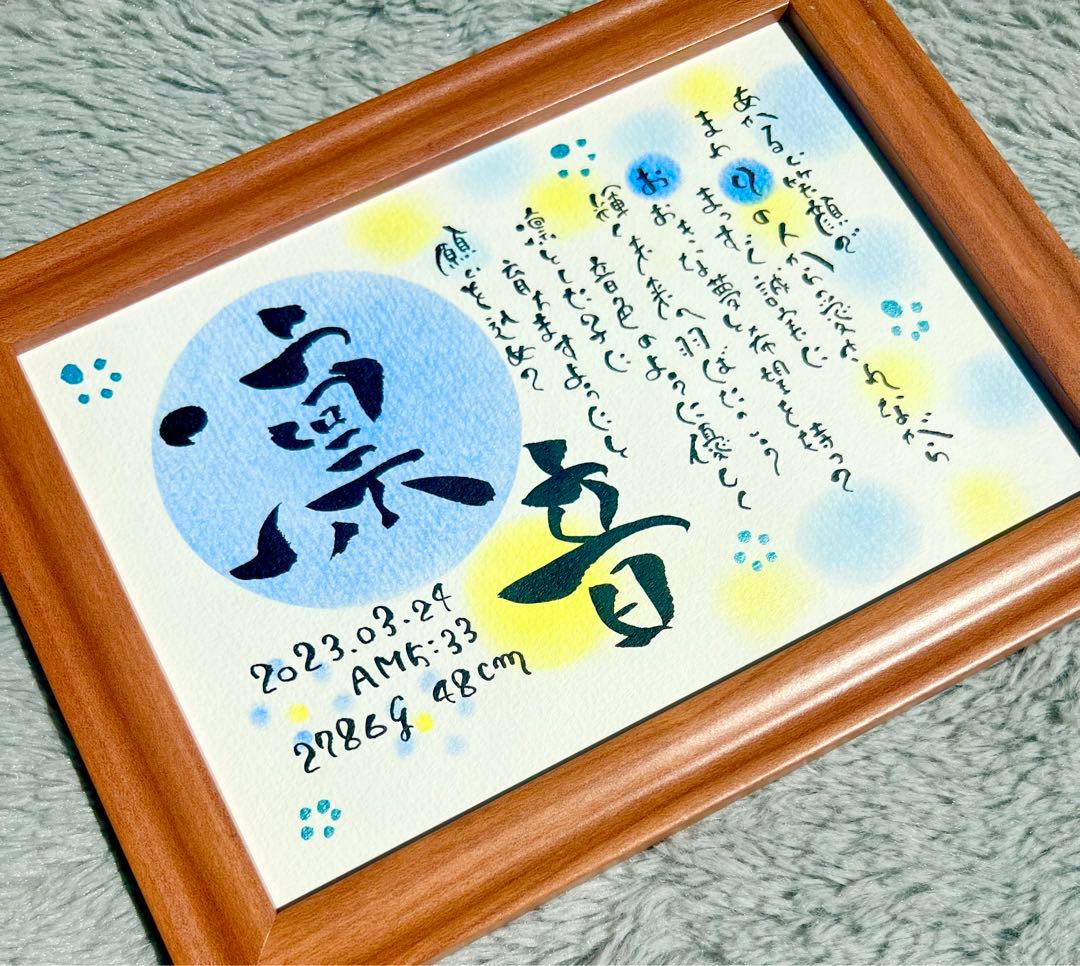 あかるい笑顔で
まわりの人から愛されながら
まっすぐ誠実に
おおきな夢と希望を持って
輝く未来へ羽ばたいて
音色のように優しく
凛とした子に
育ちますようにと
願いを込めて
凛音
2023.03.24
AM5:33
2786g 48cm